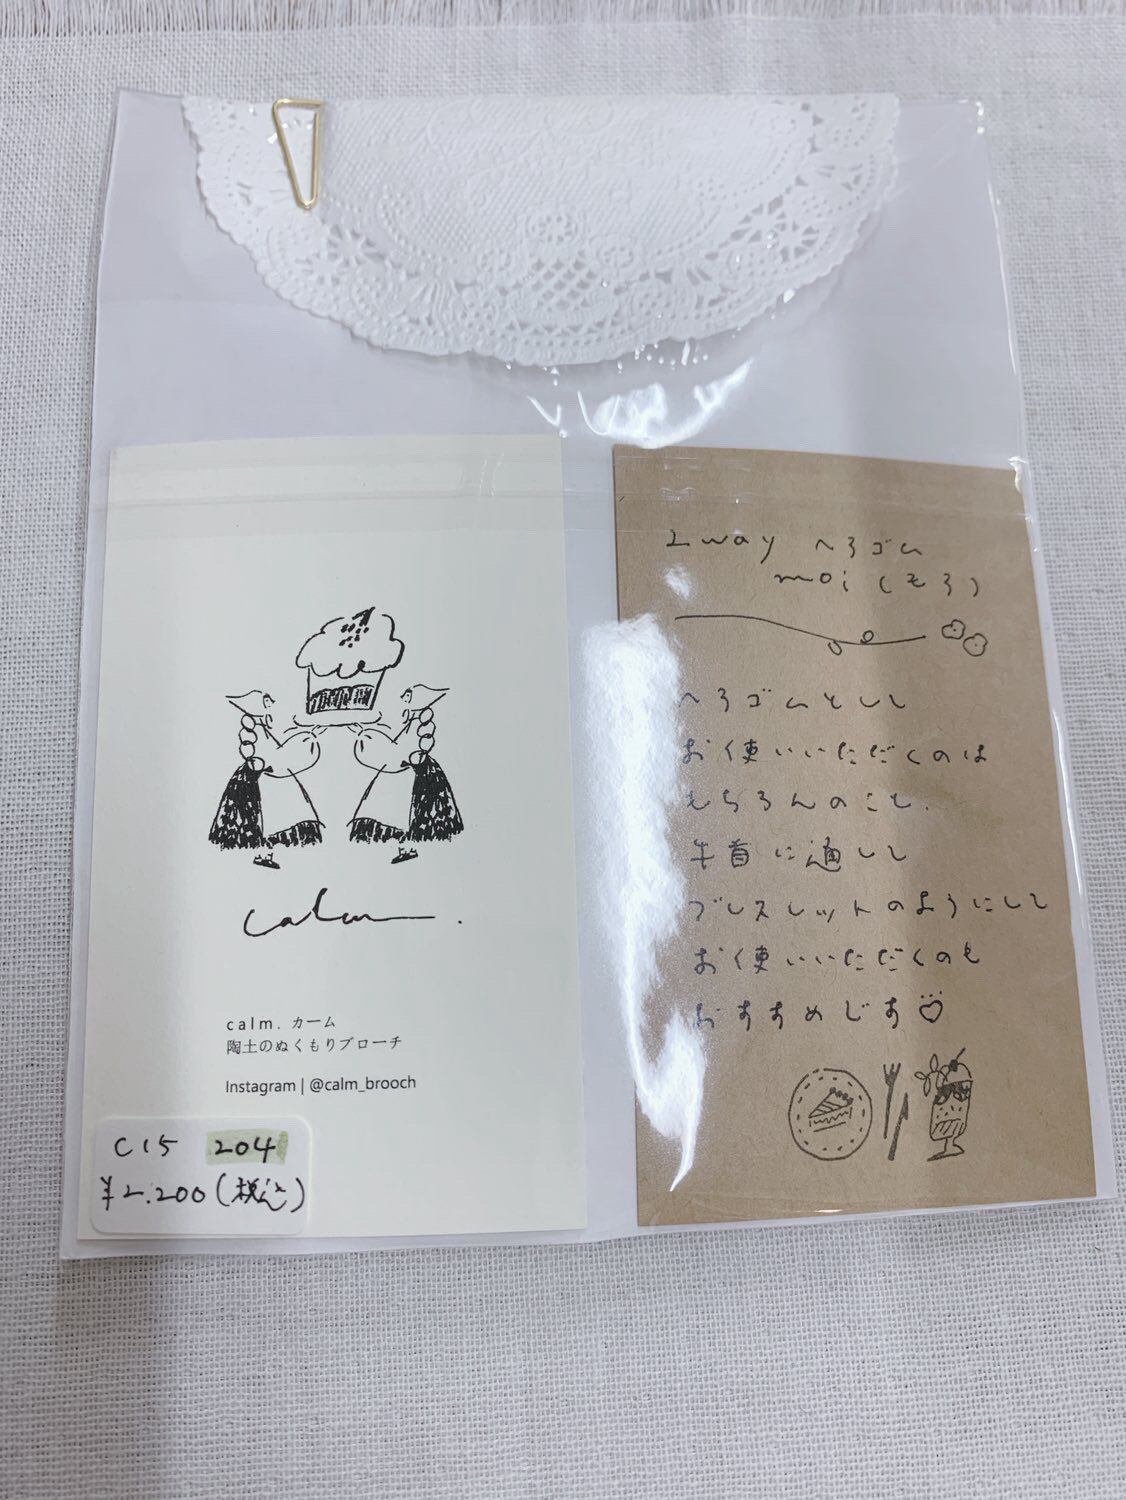 calm.
calm. カーム
陶土のぬくもりブローチ
Instagram | @calm_brooch
C15 204
¥2.200(税込)
2way ヘアゴム
moi (もろ)
ヘアゴムとして
お使いいただくのは
もちろんのこと、
手首に通して
ブレスレットのようにして
お使いいただくのも
おすすめです♡